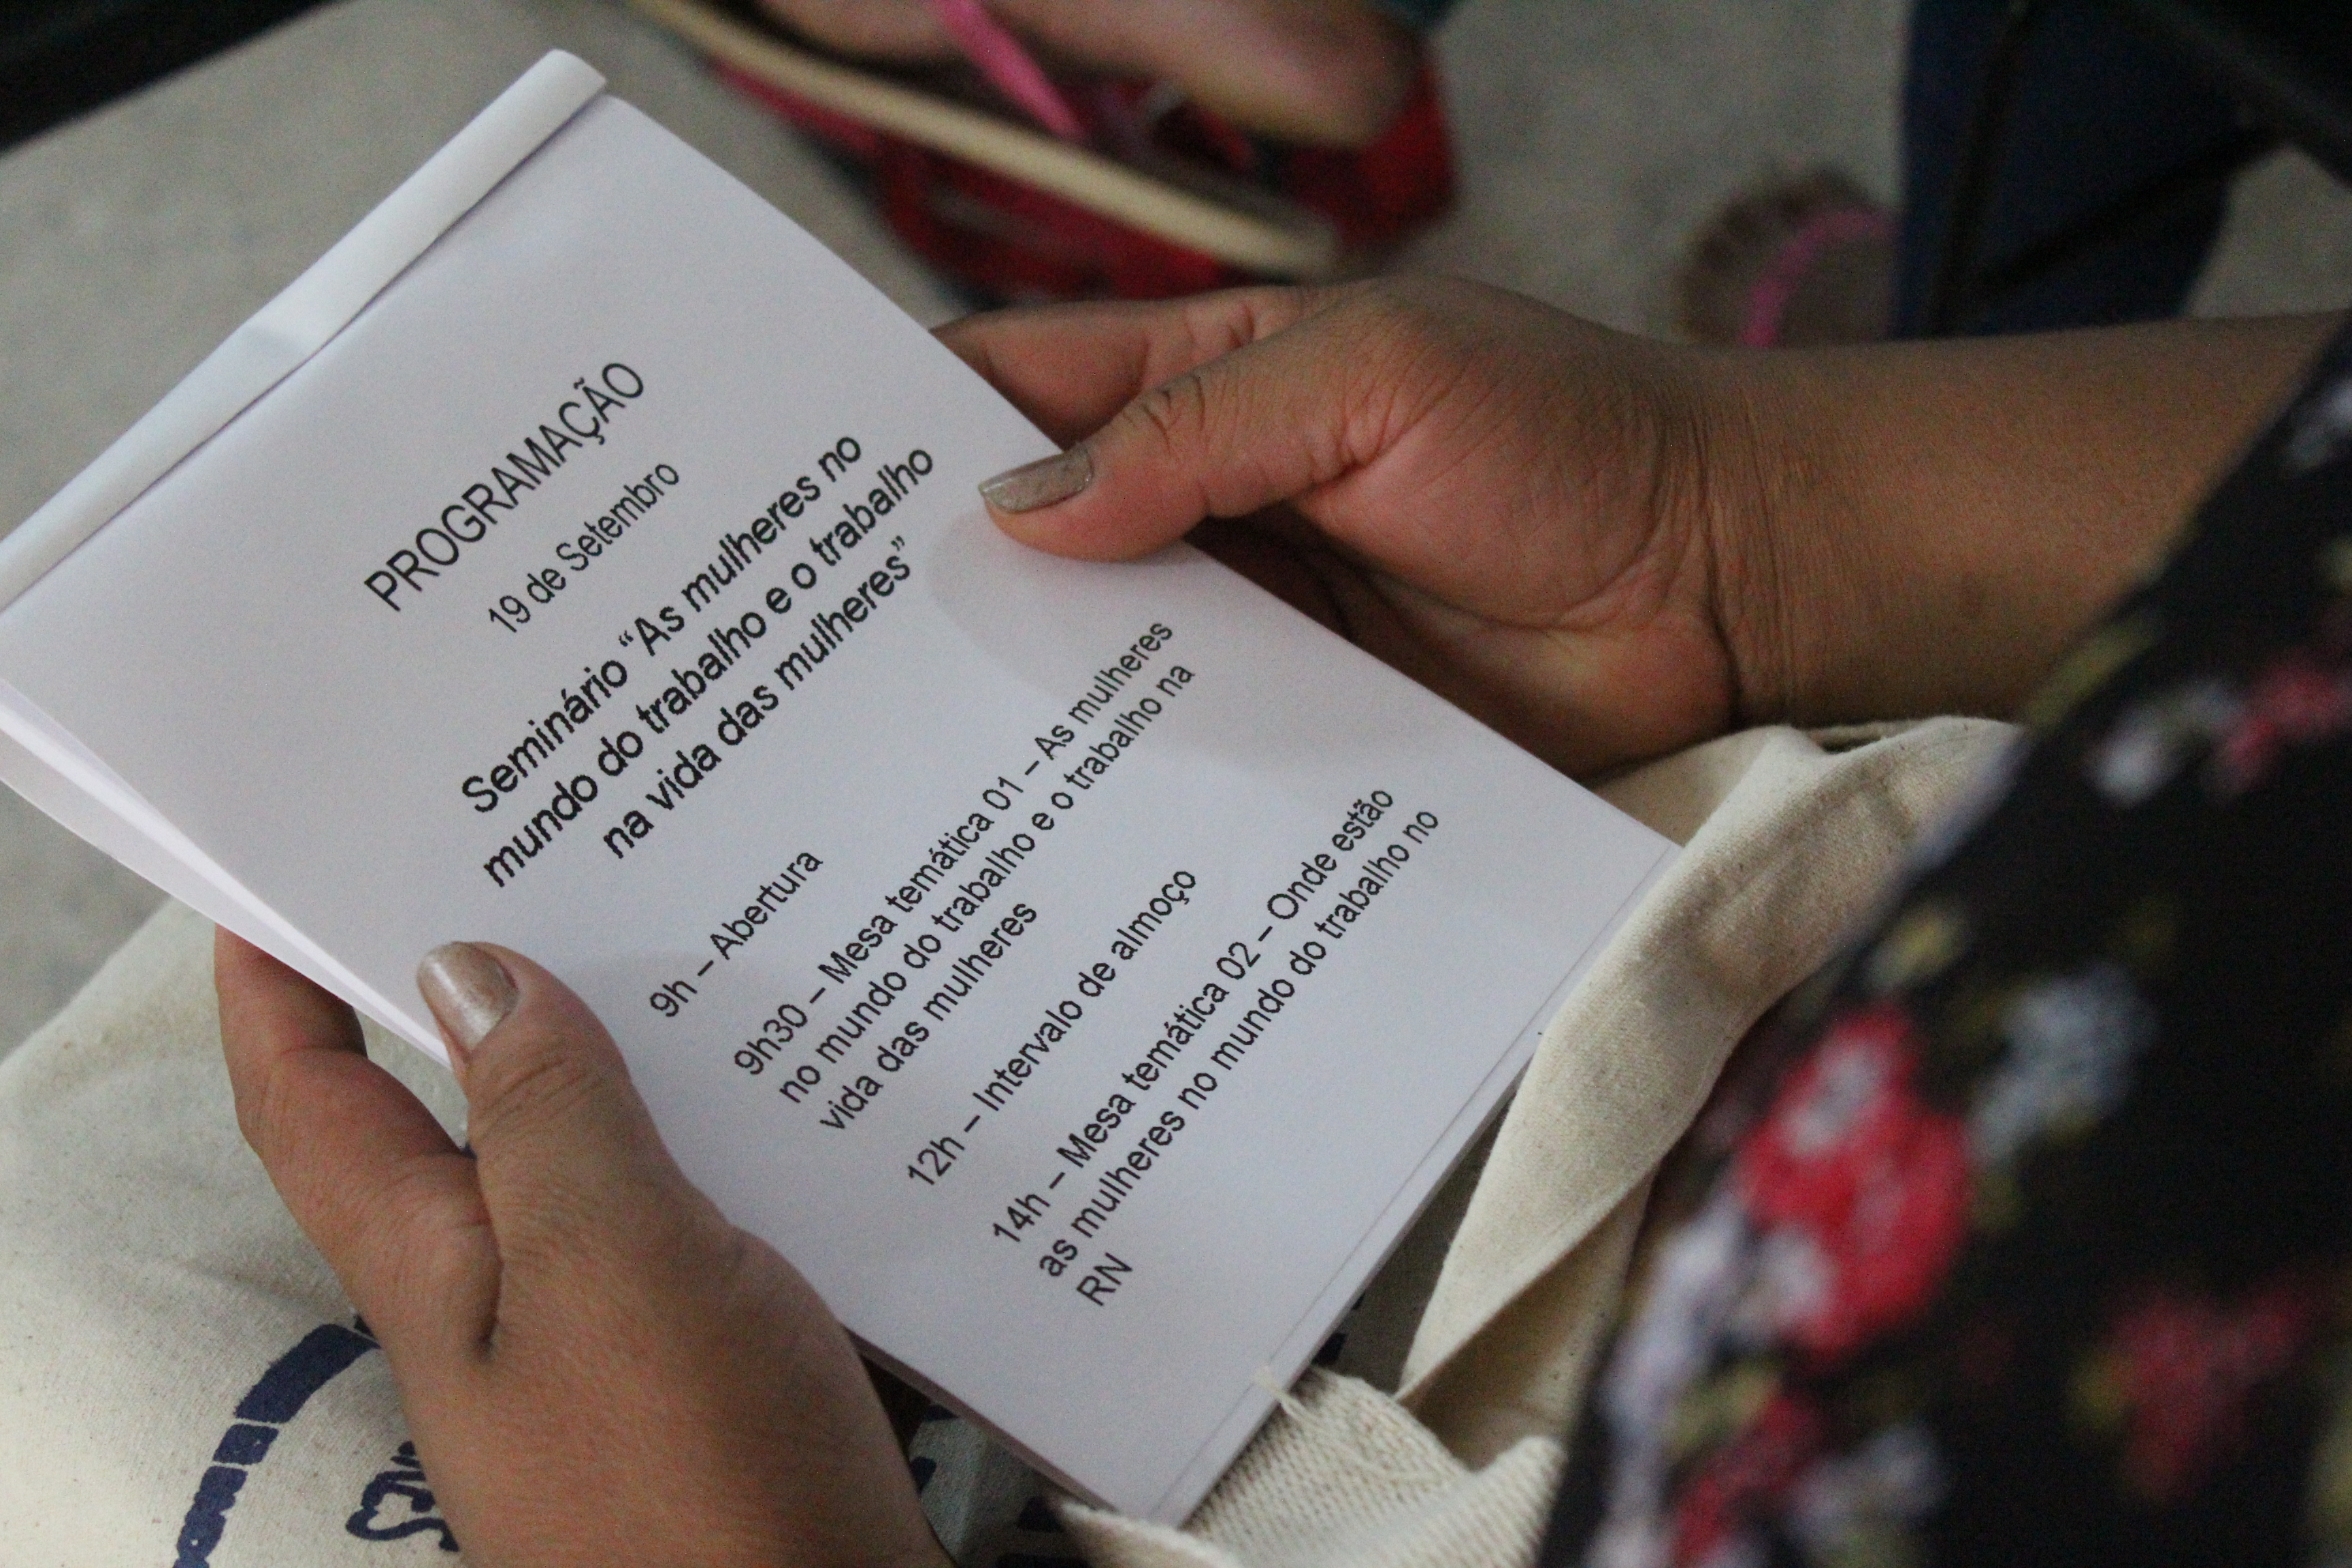 PROGRAMAÇÃO
19 de Setembro
Seminário “As mulheres no
mundo do trabalho e o trabalho
na vida das mulheres”
9h – Abertura
9h30 – Mesa temática 01 – As mulheres
no mundo do trabalho e o trabalho na
vida das mulheres
12h – Intervalo de almoço
14h – Mesa temática 02 – Onde estão
as mulheres no mundo do trabalho no
RN